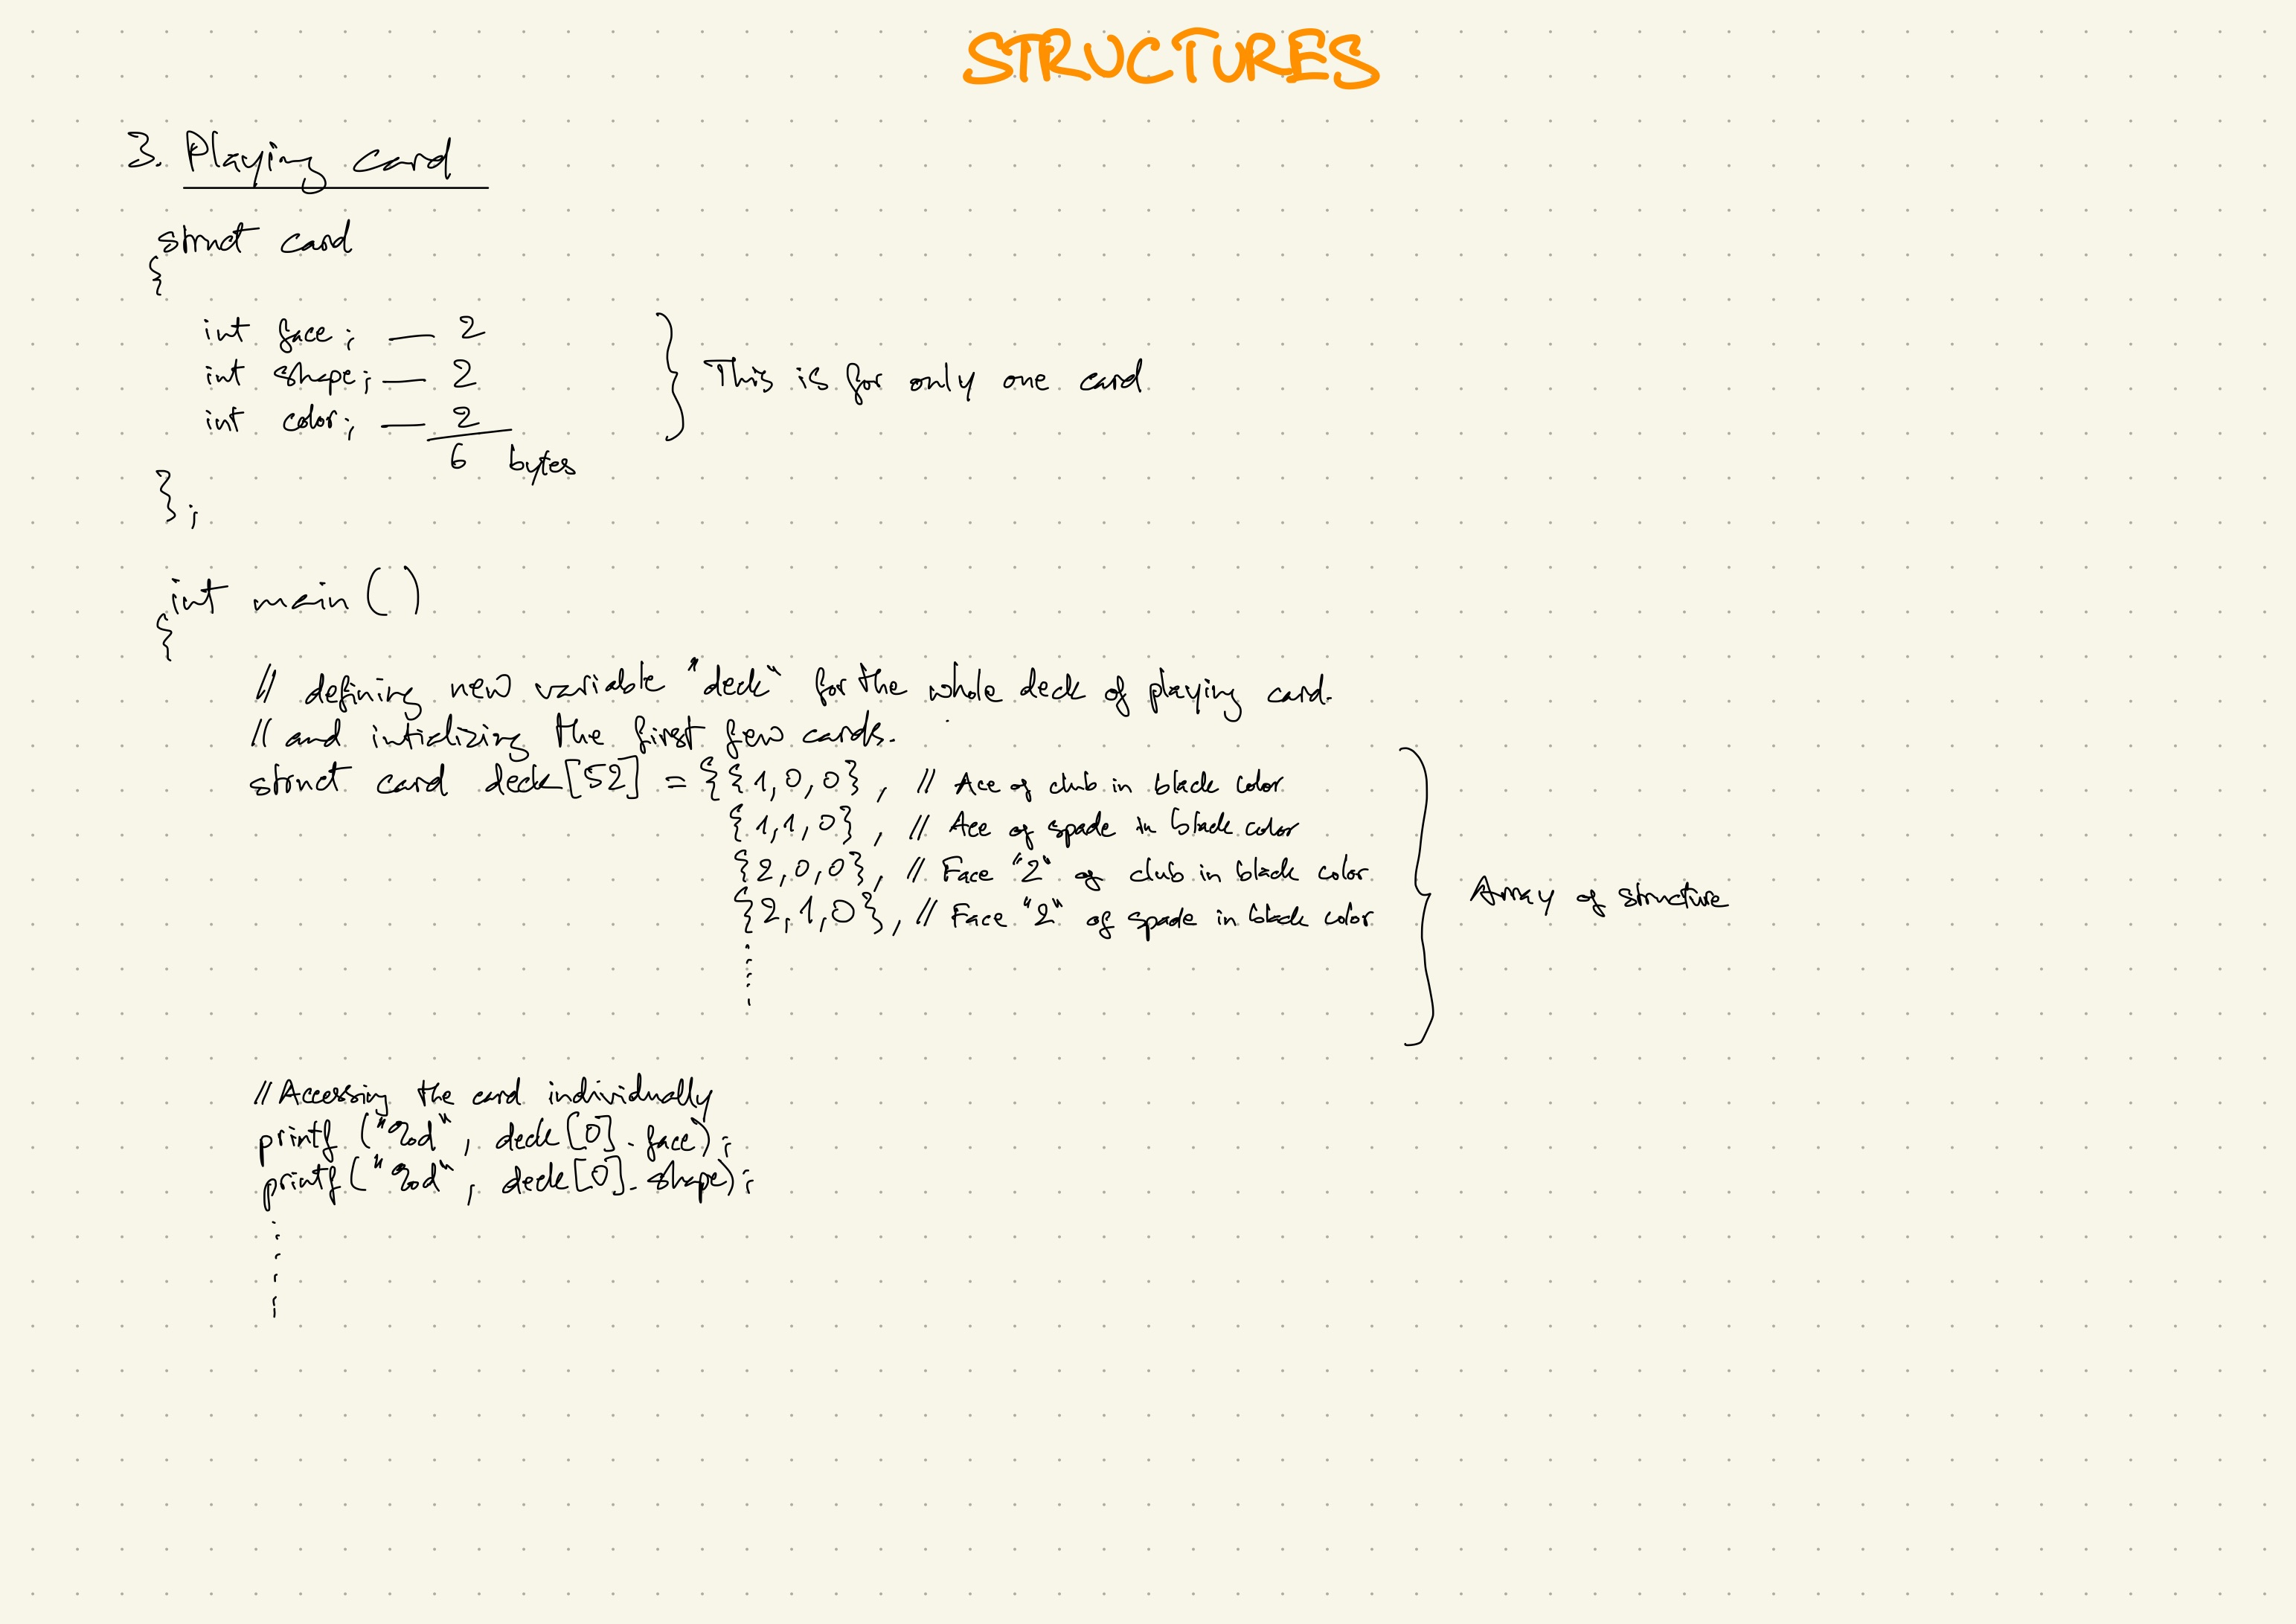 STRUCTURES
3. Playing card
struct card
{
int face; — 2
int shape; — 2
int color; — 2
6 bytes
} This is for only one card
};
int main()
{
// defining new variable "deck" for the whole deck of playing card.
// and intializing the first few cards.
struct card deck[52] = {{1,0,0}, // Ace of club in black color
{1,1,0}, // Ace of spade in black color
{2,0,0}, // Face "2" of club in black color
{2,1,0}, // Face "2" of spade in black color
} Array of structure
// Accessing the card individually
printf ("%d", deck[0].face);
printf("%d", deck[0].shape);